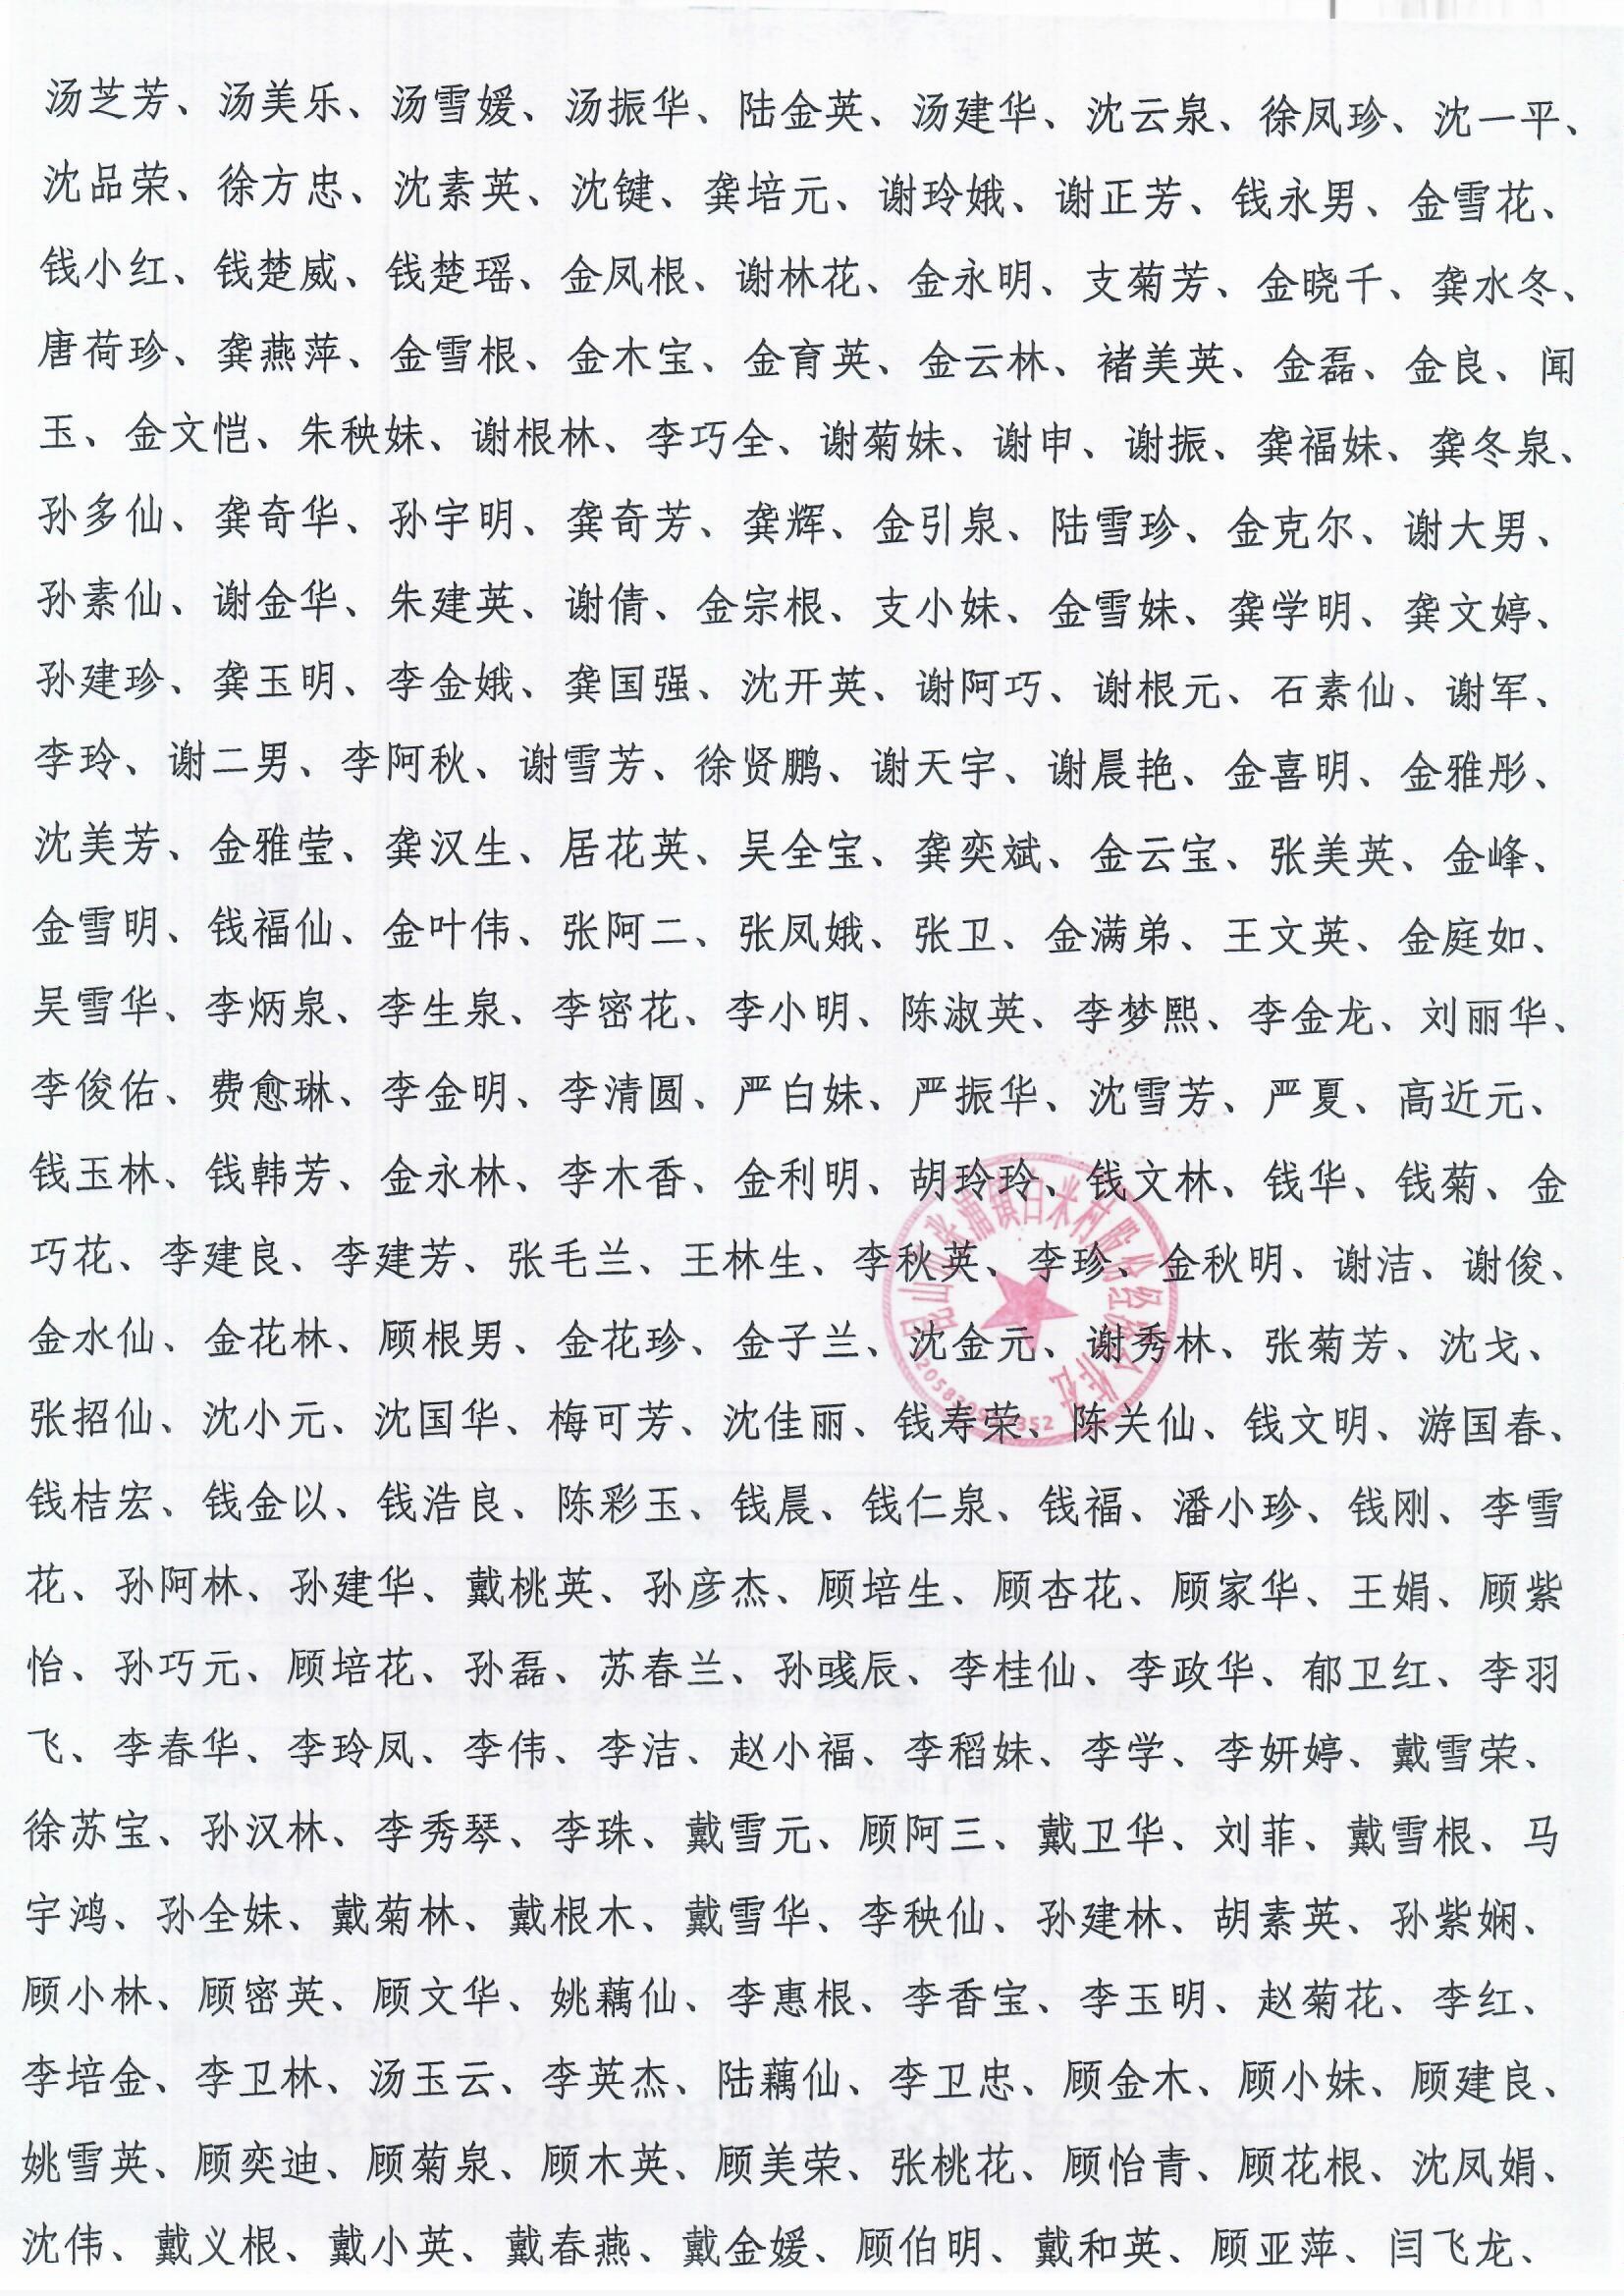 汤芝芳、汤美乐、汤雪媛、汤振华、陆金英、汤建华、沈云泉、徐凤珍、沈一平、
沈品荣、徐方忠、沈素英、沈键、龚培元、谢玲娥、谢正芳、钱永男、金雪花、
钱小红、钱楚威、钱楚瑶、金凤根、谢林花、金永明、支菊芳、金晓千、龚水冬、
唐荷珍、龚燕萍、金雪根、金木宝、金育英、金云林、褚美英、金磊、金良、闻
玉、金文恺、朱秧妹、谢根林、李巧全、谢菊妹、谢申、谢振、龚福妹、龚冬泉、
孙多仙、龚奇华、孙宇明、龚奇芳、龚辉、金引泉、陆雪珍、金克尔、谢大男、
孙素仙、谢金华、朱建英、谢倩、金宗根、支小妹、金雪妹、龚学明、龚文婷、
孙建珍、龚玉明、李金娥、龚国强、沈开英、谢阿巧、谢根元、石素仙、谢军、
李玲、谢二男、李阿秋、谢雪芳、徐贤鹏、谢天宇、谢晨艳、金喜明、金雅彤、
沈美芳、金雅莹、龚汉生、居花英、吴全宝、龚奕斌、金云宝、张美英、金峰、
金雪明、钱福仙、金叶伟、张阿二、张凤娥、张卫、金满弟、王文英、金庭如、
吴雪华、李炳泉、李生泉、李密花、李小明、陈淑英、李梦熙、李金龙、刘丽华、
李俊佑、费愈琳、李金明、李清圆、严白妹、严振华、沈雪芳、严夏、高近元、
钱玉林、钱韩芳、金永林、李木香、金利明、胡玲玲、钱文林、钱华、钱菊、金
巧花、李建良、李建芳、张毛兰、王林生、李秋英、李珍、金秋明、谢洁、谢俊、
金水仙、金花林、顾根男、金花珍、金子兰、沈金元、谢秀林、张菊芳、沈戈、
张招仙、沈小元、沈国华、梅可芳、沈佳丽、钱寿荣、陈关仙、钱文明、游国春、
钱桔宏、钱金以、钱浩良、陈彩玉、钱晨、钱仁泉、钱福、潘小珍、钱刚、李雪
花、孙阿林、孙建华、戴桃英、孙彦杰、顾培生、顾杏花、顾家华、王娟、顾紫
怡、孙巧元、顾培花、孙磊、苏春兰、孙彧辰、李桂仙、李政华、郁卫红、李羽
飞、李春华、李玲凤、李伟、李洁、赵小福、李稻妹、李学、李妍婷、戴雪荣、
徐苏宝、孙汉林、李秀琴、李珠、戴雪元、顾阿三、戴卫华、刘菲、戴雪根、马
宇鸿、孙全妹、戴菊林、戴根木、戴雪华、李秧仙、孙建林、胡素英、孙紫娴、
顾小林、顾密英、顾文华、姚藕仙、李惠根、李香宝、李玉明、赵菊花、李红、
李培金、李卫林、汤玉云、李英杰、陆藕仙、李卫忠、顾金木、顾小妹、顾建良、
姚雪英、顾奕迪、顾菊泉、顾木英、顾美荣、张桃花、顾怡青、顾花根、沈凤娟、
沈伟、戴义根、戴小英、戴春燕、戴金媛、顾伯明、戴和英、顾亚萍、闫飞龙、